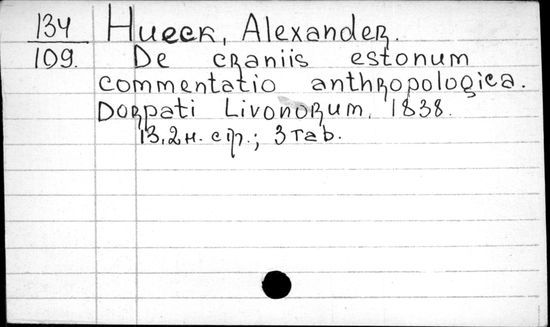 134
109.
Hueck, Alexander.
De craniis estonum
commentatio anthropologica.
Dorpati Livonorum, 1838.
13,2н. стр.; 3 таb.